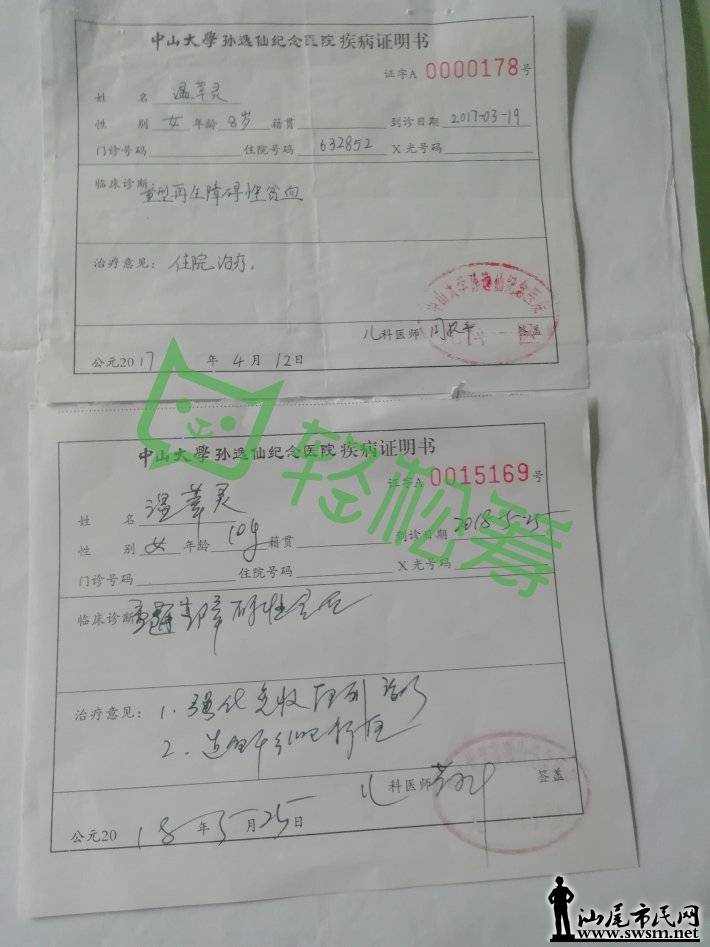 中山大學孙逸仙纪念医院疾病证明书
证字A 0000178号
姓 名 温莘灵
性 别 女 年龄 8岁 籍贯 到诊日期 2017-03-19
门诊号码 住院号码 632852 X光号码
临床诊断 重型再生障碍性贫血
治疗意见: 住院治疗.
中山大学孙逸仙纪念医院
儿科医师 签盖
公元2017年4月12日
轻松筹
中山大學孙逸仙纪念医院疾病证明书
证字A 0015169号
姓 名 温 灵
性 别 女 年龄 10y 籍贯 到诊日期 2018-5-25
门诊号码 住院号码 X光号码
临床诊断 障碍性贫血
治疗意见: 1. 强化免疫抑制治疗
2. 造血干细胞移植
儿科医师 签盖
公元2018年5月25日
汕尾市民网
www.swsm.net